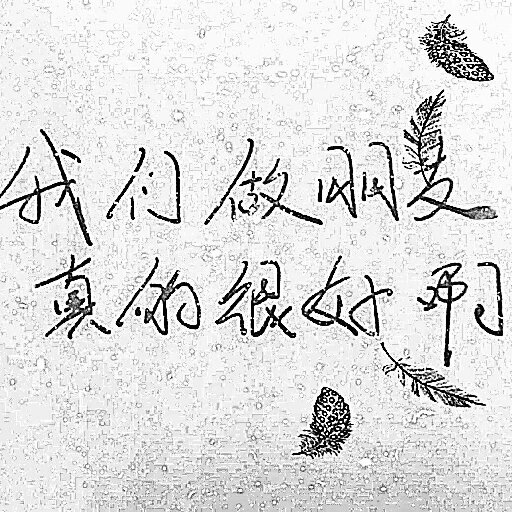 我们做朋友
真的很好啊